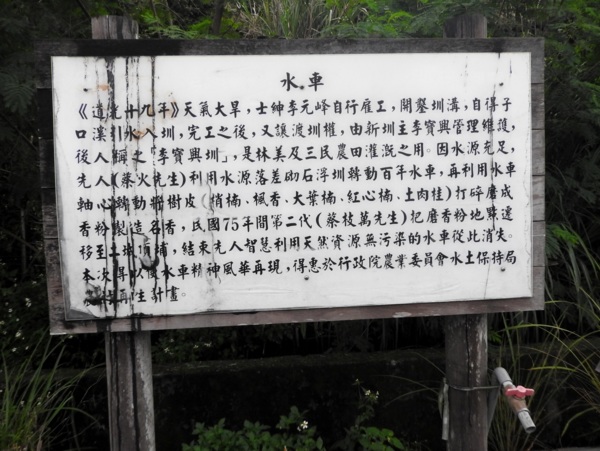 水車
《道光廿九年》天氣大旱，士紳李元峰自行雇工，開鑿圳溝，自得子
口溪引水入圳，完工之後，又讓渡圳權，由新圳主李寶興管理維護，
後人稱之「李寶興圳」，是林美及三民農田灌溉之用。因水源充足，
先人(蔡火先生)利用水源落差砌石浮圳轉動百年水車，再利用水車
軸心轉動將樹皮(梢楠、楓香、大葉楠、紅心楠、土肉桂)打碎磨成
香粉製造名香，民國75年間第二代(蔡枝萬先生)把磨香粉地點遷
移至二城 補，結束先人智慧利用天然資源無污染的水車從此消失。
本次 以復水車精神風華再現，得惠於行政院農業委員會水土保持局
生計畫。